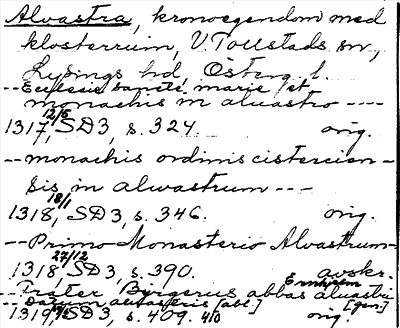 Alvastra, kronoegendom med
klosterruin, V. Tollstads sn,
Lysings hd, Österg. l.
-- Ecclesie sancte marie et
monachis in aluastro ----
1317 12/5, SD3, s. 324. orig.
-- monachis ordinis cistercien-
sis in alwastrum ---
1318 18/1, SD3, s. 346. orig.
-- Primo Monasterio Alvastrum--
1318 27/12 SD3, s. 390. avskr.
-- Frater Byrgerus abbas aluastri
-- Datum aluastris [abl.] [gen.]
1319, SD3, s. 409. 410 orig.